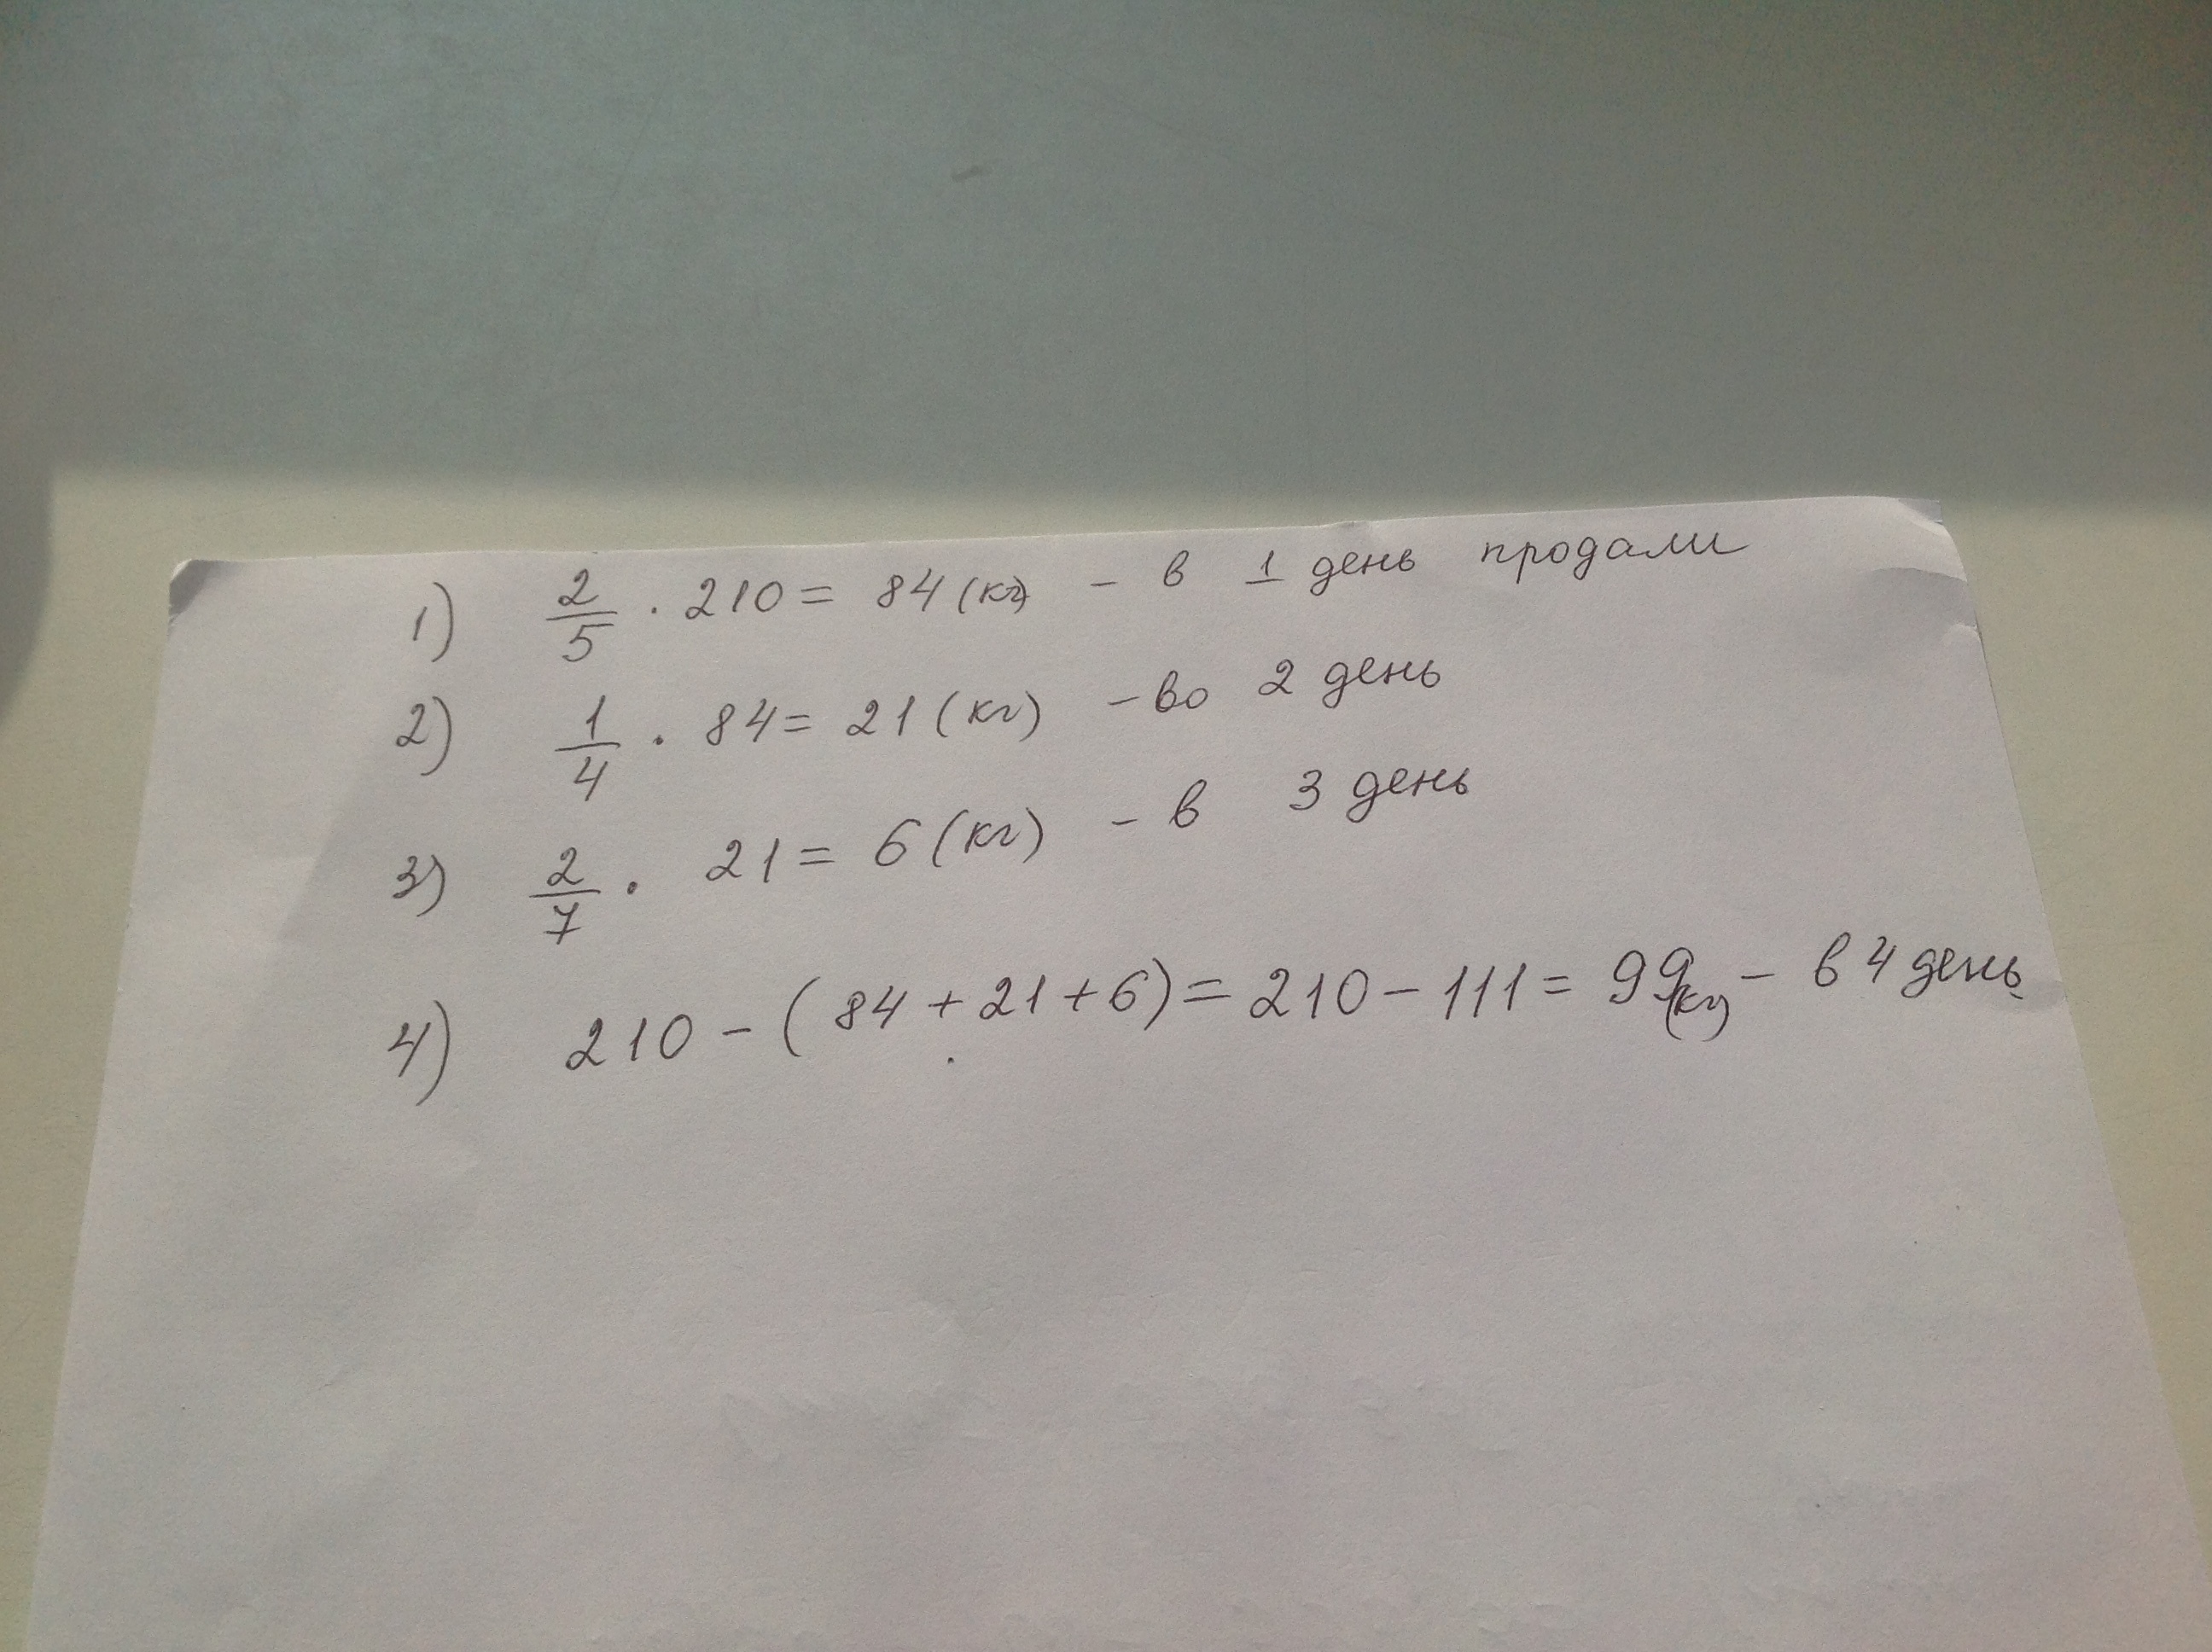 1) 2/5 · 210 = 84 (кг) - в 1 день продали
2) 1/4 · 84 = 21 (кг) - во 2 день
3) 2/7 · 21 = 6 (кг) - в 3 день
4) 210 - (84 + 21 + 6) = 210 - 111 = 99 (кг) - в 4 день